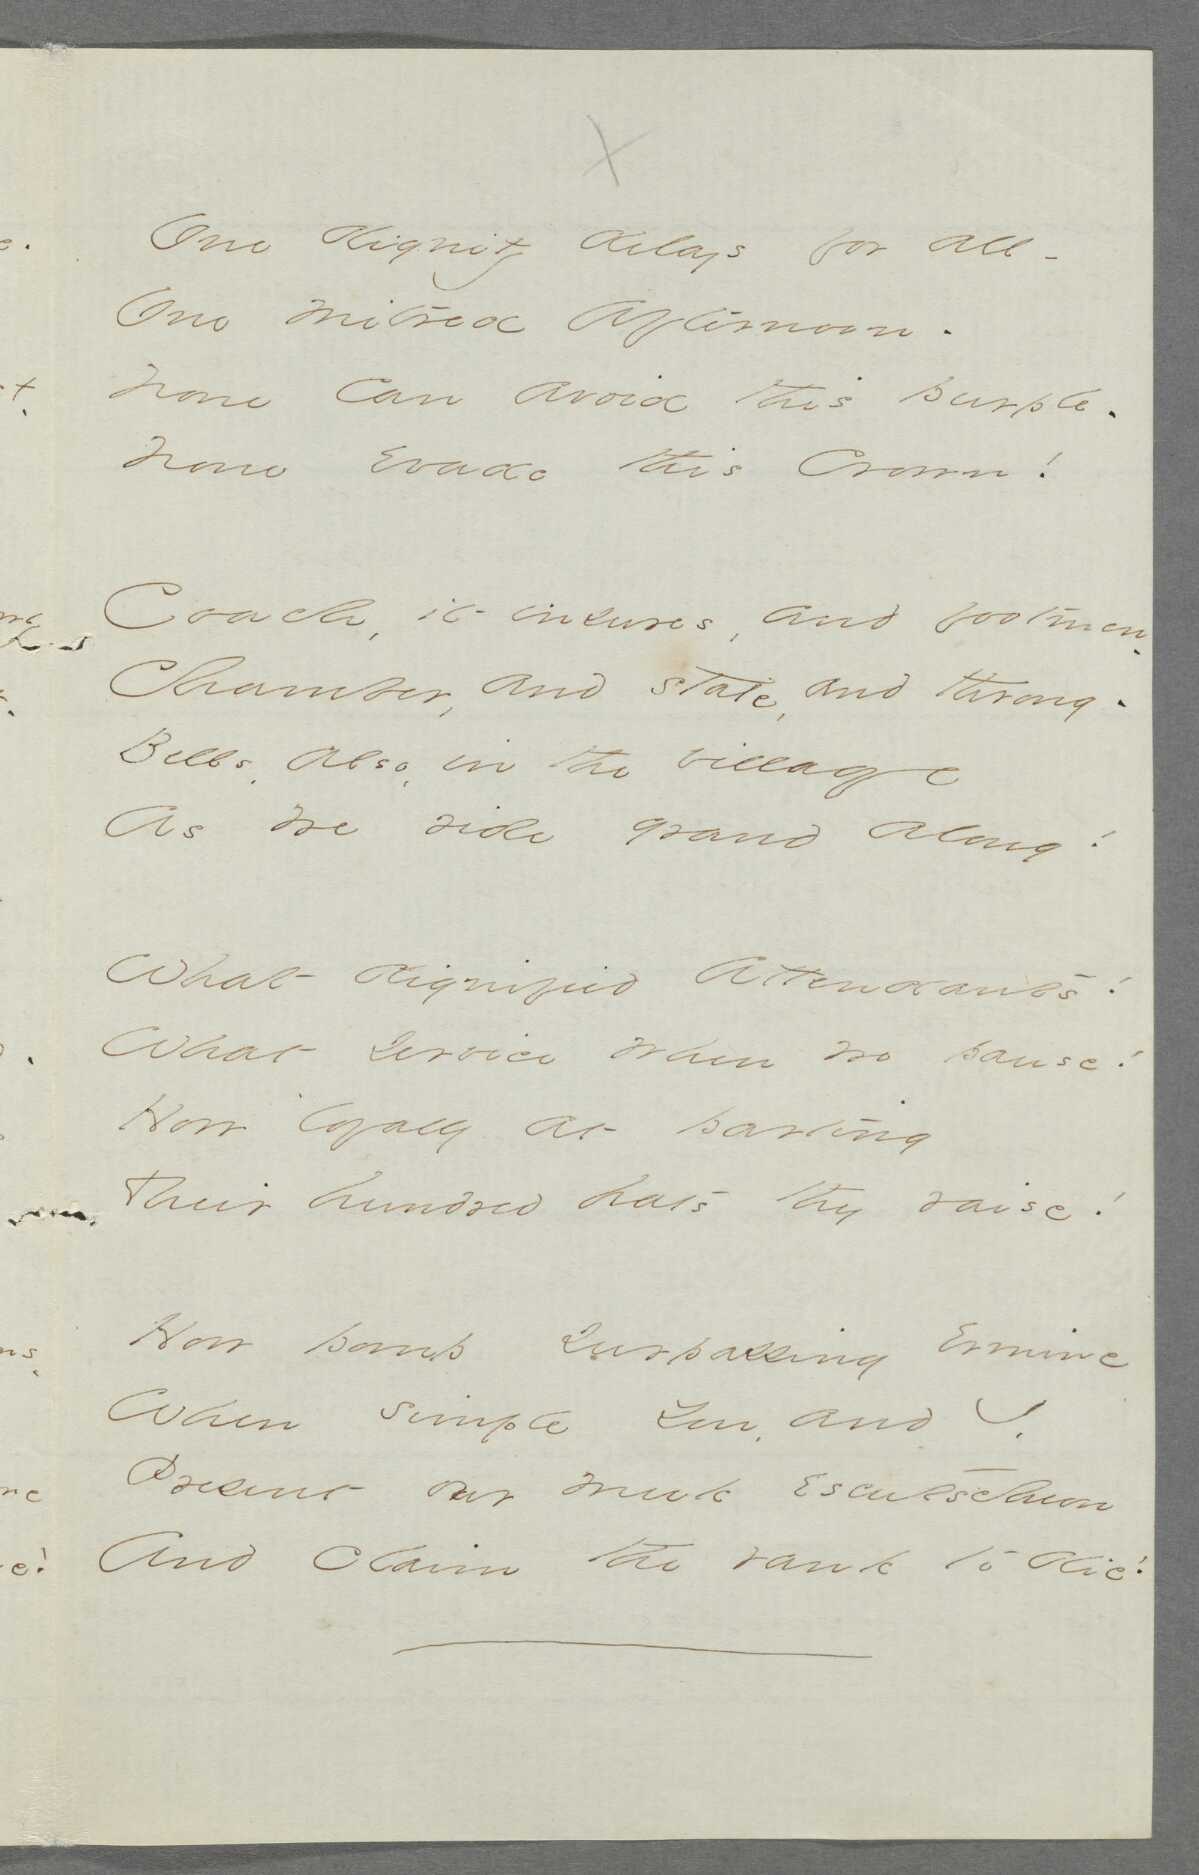 X
One dignity delays for all -
One mitred afternoon.
None can avoid this purple.
None evade this Crown!
Coach, it insures, and footmen.
Chamber, and state, and throng.
Bells, also, in the village
As we ride grand along!
What dignified Attendants!
What service when we pause!
How loyally at parting
Their hundred hats they raise!
How pomp surpassing Ermine
When simple You, and I,
Present our meek Escutscheon
And claim the rank to die!